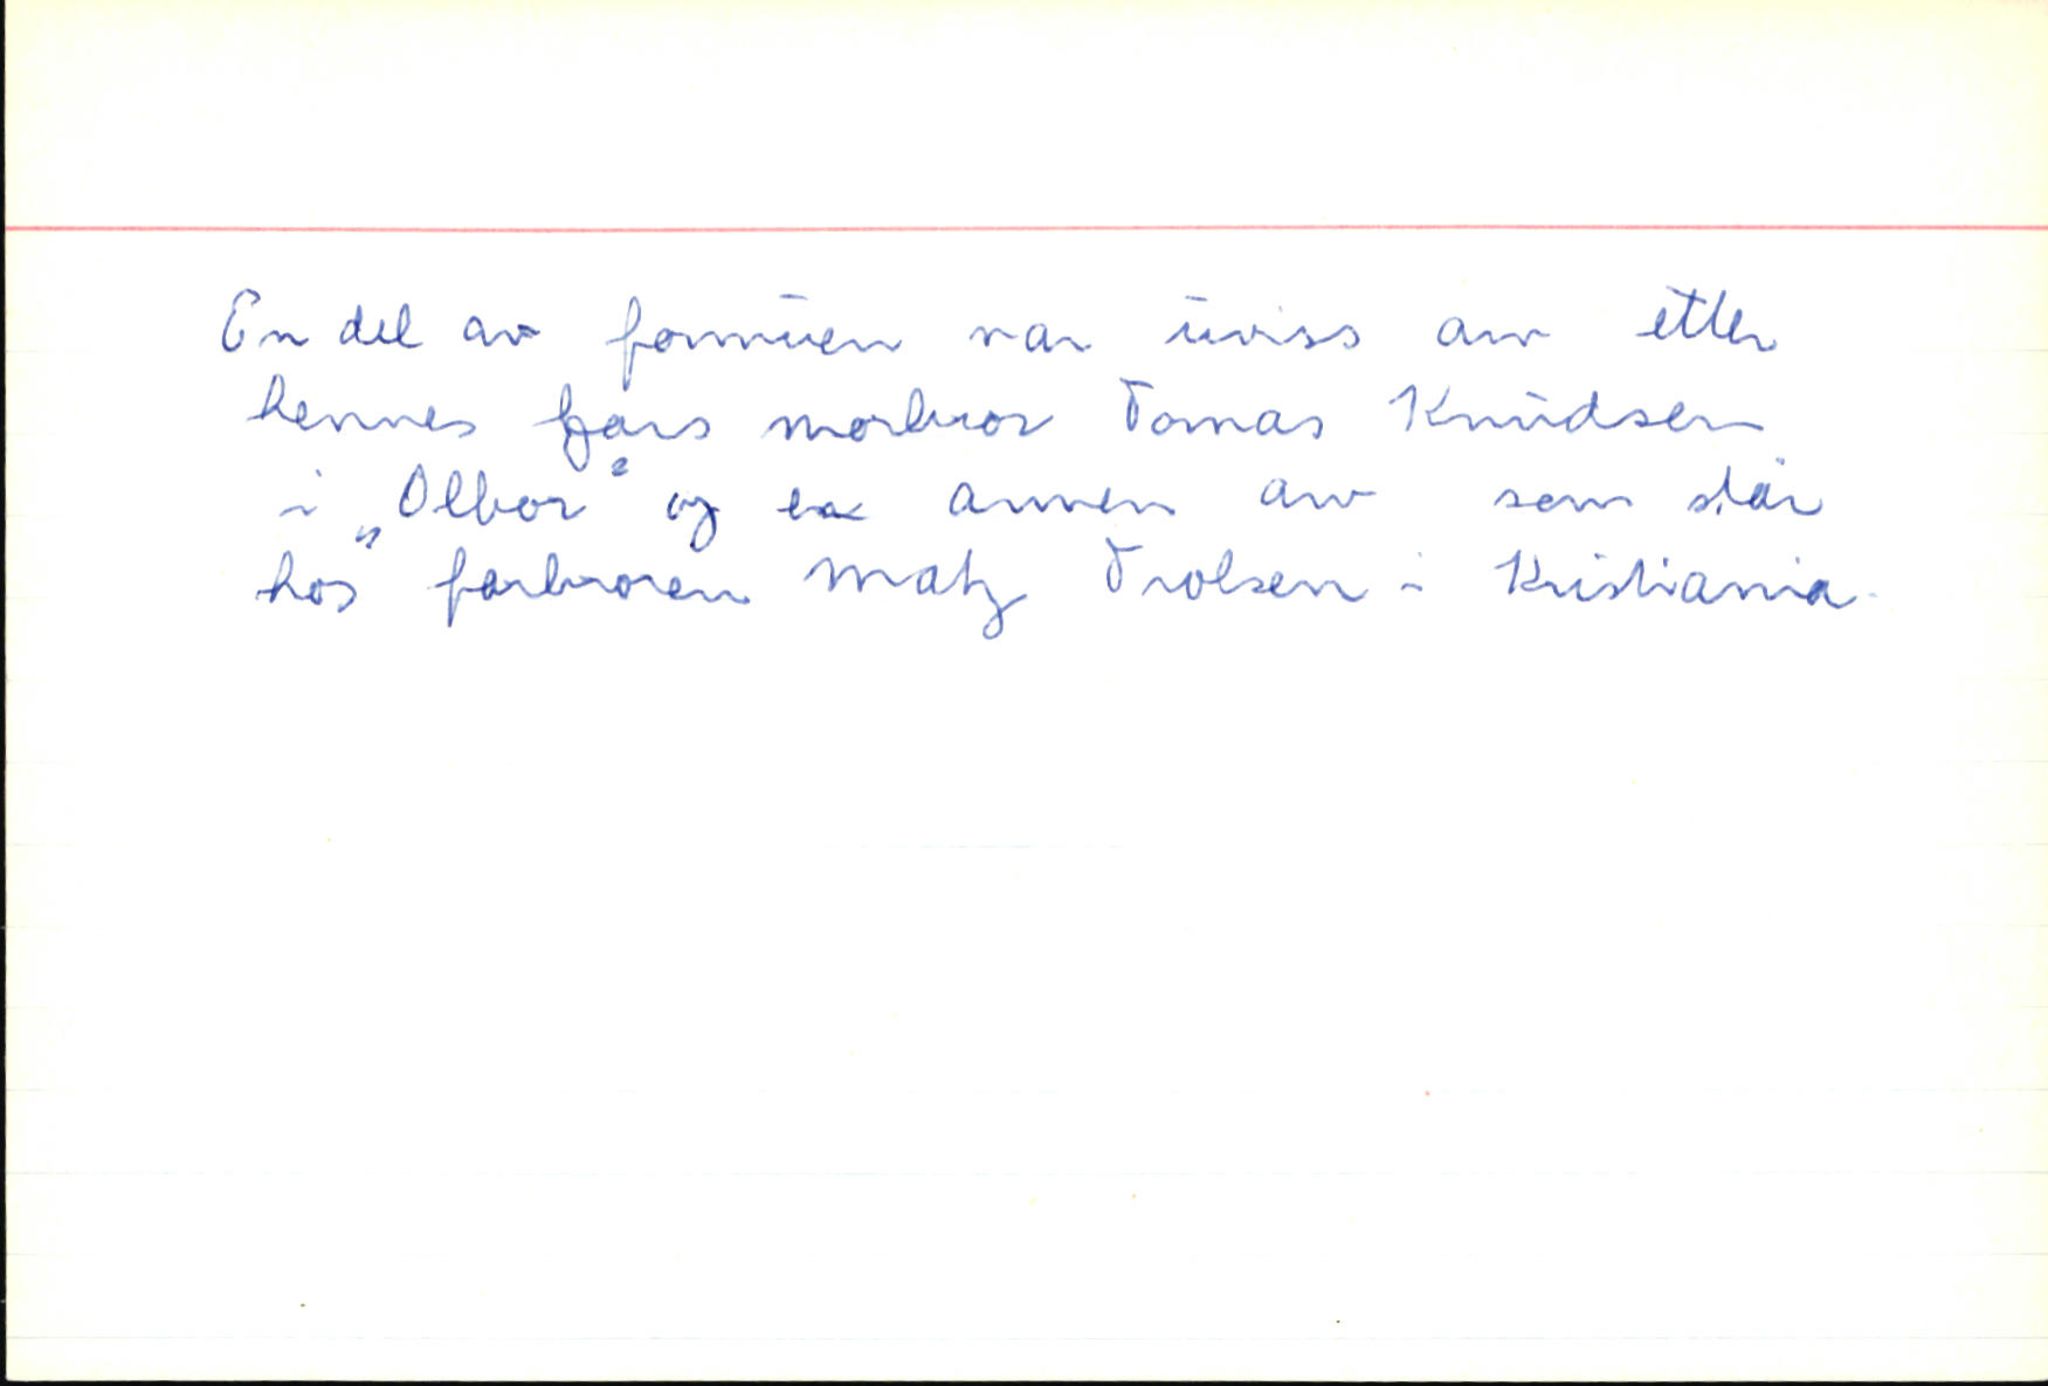 En del av formuen var uviss arv etter
hennes fars morbror Tomas Knudsen
i „Olbor" og en annen arv som står
hos farbroren Matz Trolsen i Kristiania.